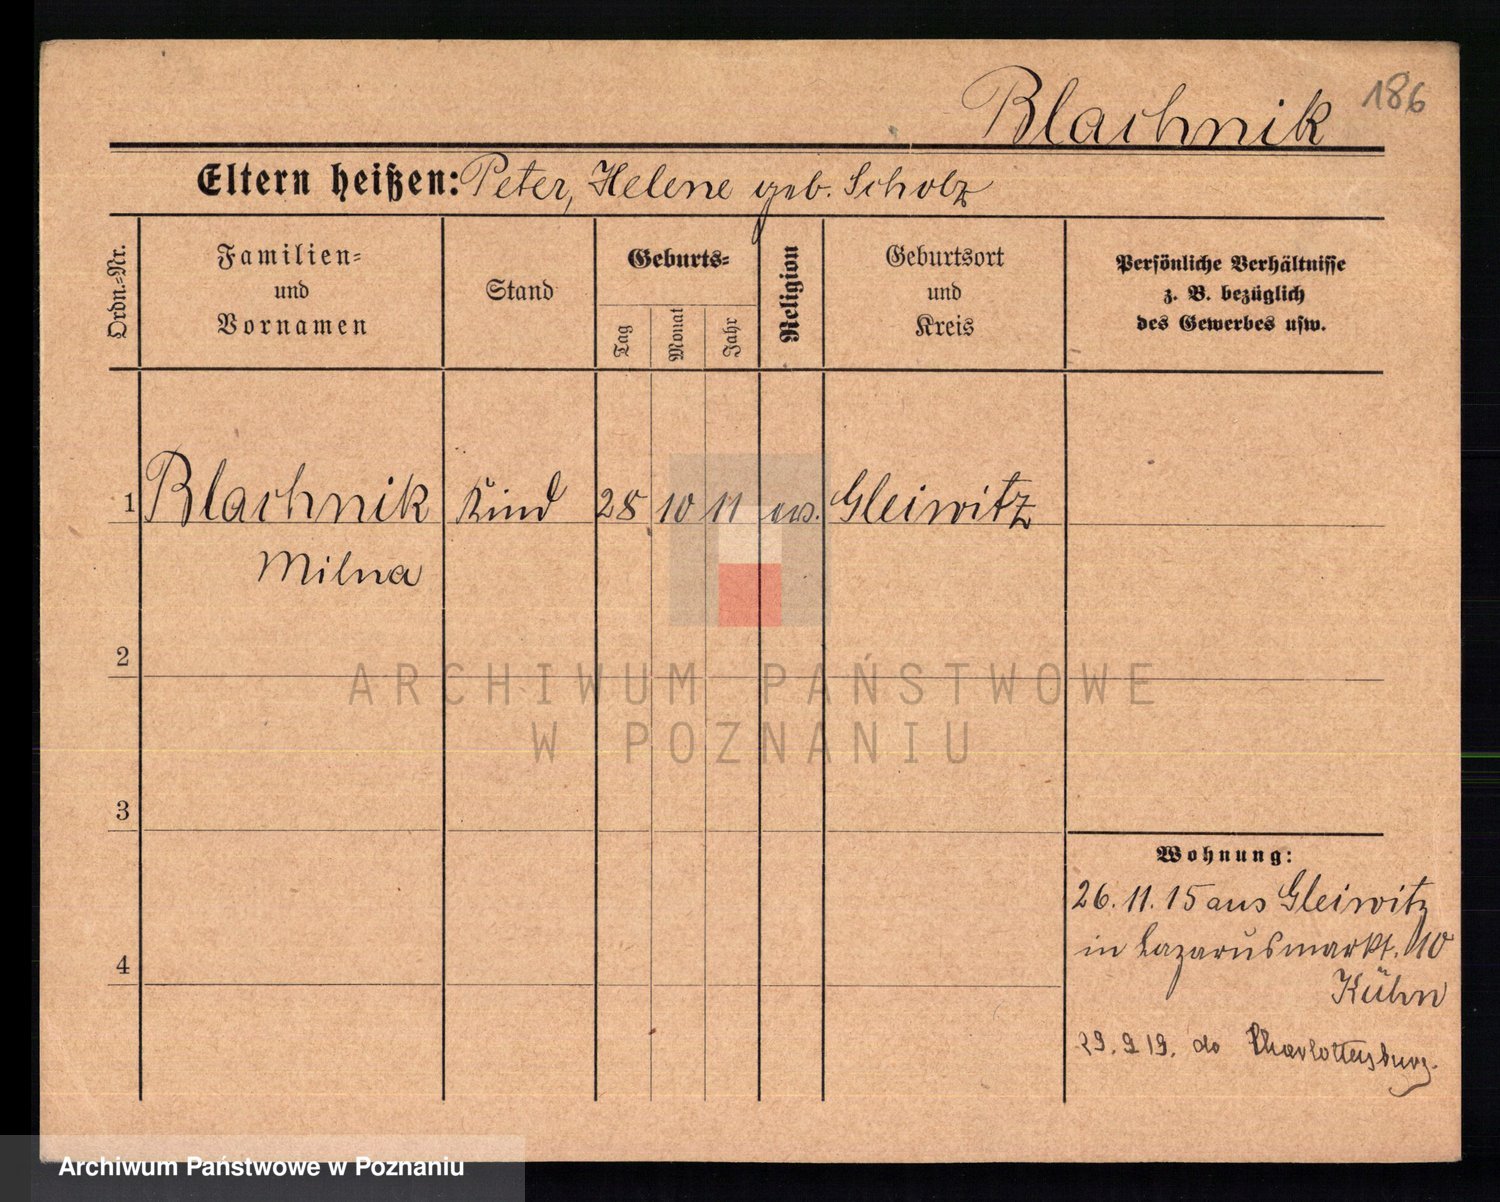 Blachnik 186
Eltern heißen: Peter, Helene geb. Scholz
Ordn.-Nr.
Familien-
und
Vornamen
Stand
Geburts-
Tag
Monat
Jahr
Religion
Geburtsort
und
Kreis
Persönliche Verhältnisse
z. B. bezüglich
des Gewerbes usw.
1 Blachnik Kind 28 10 11 ev. Gleiwitz
Milna
2
3
4
Wohnung:
26.11.15 aus Gleiwitz
in Lazarusmarkt. 10
Kühn
29.9 19. do Charlottenburg.
ARCHIWUM PAŃSTWOWE
W POZNANIU
Archiwum Państwowe w Poznaniu